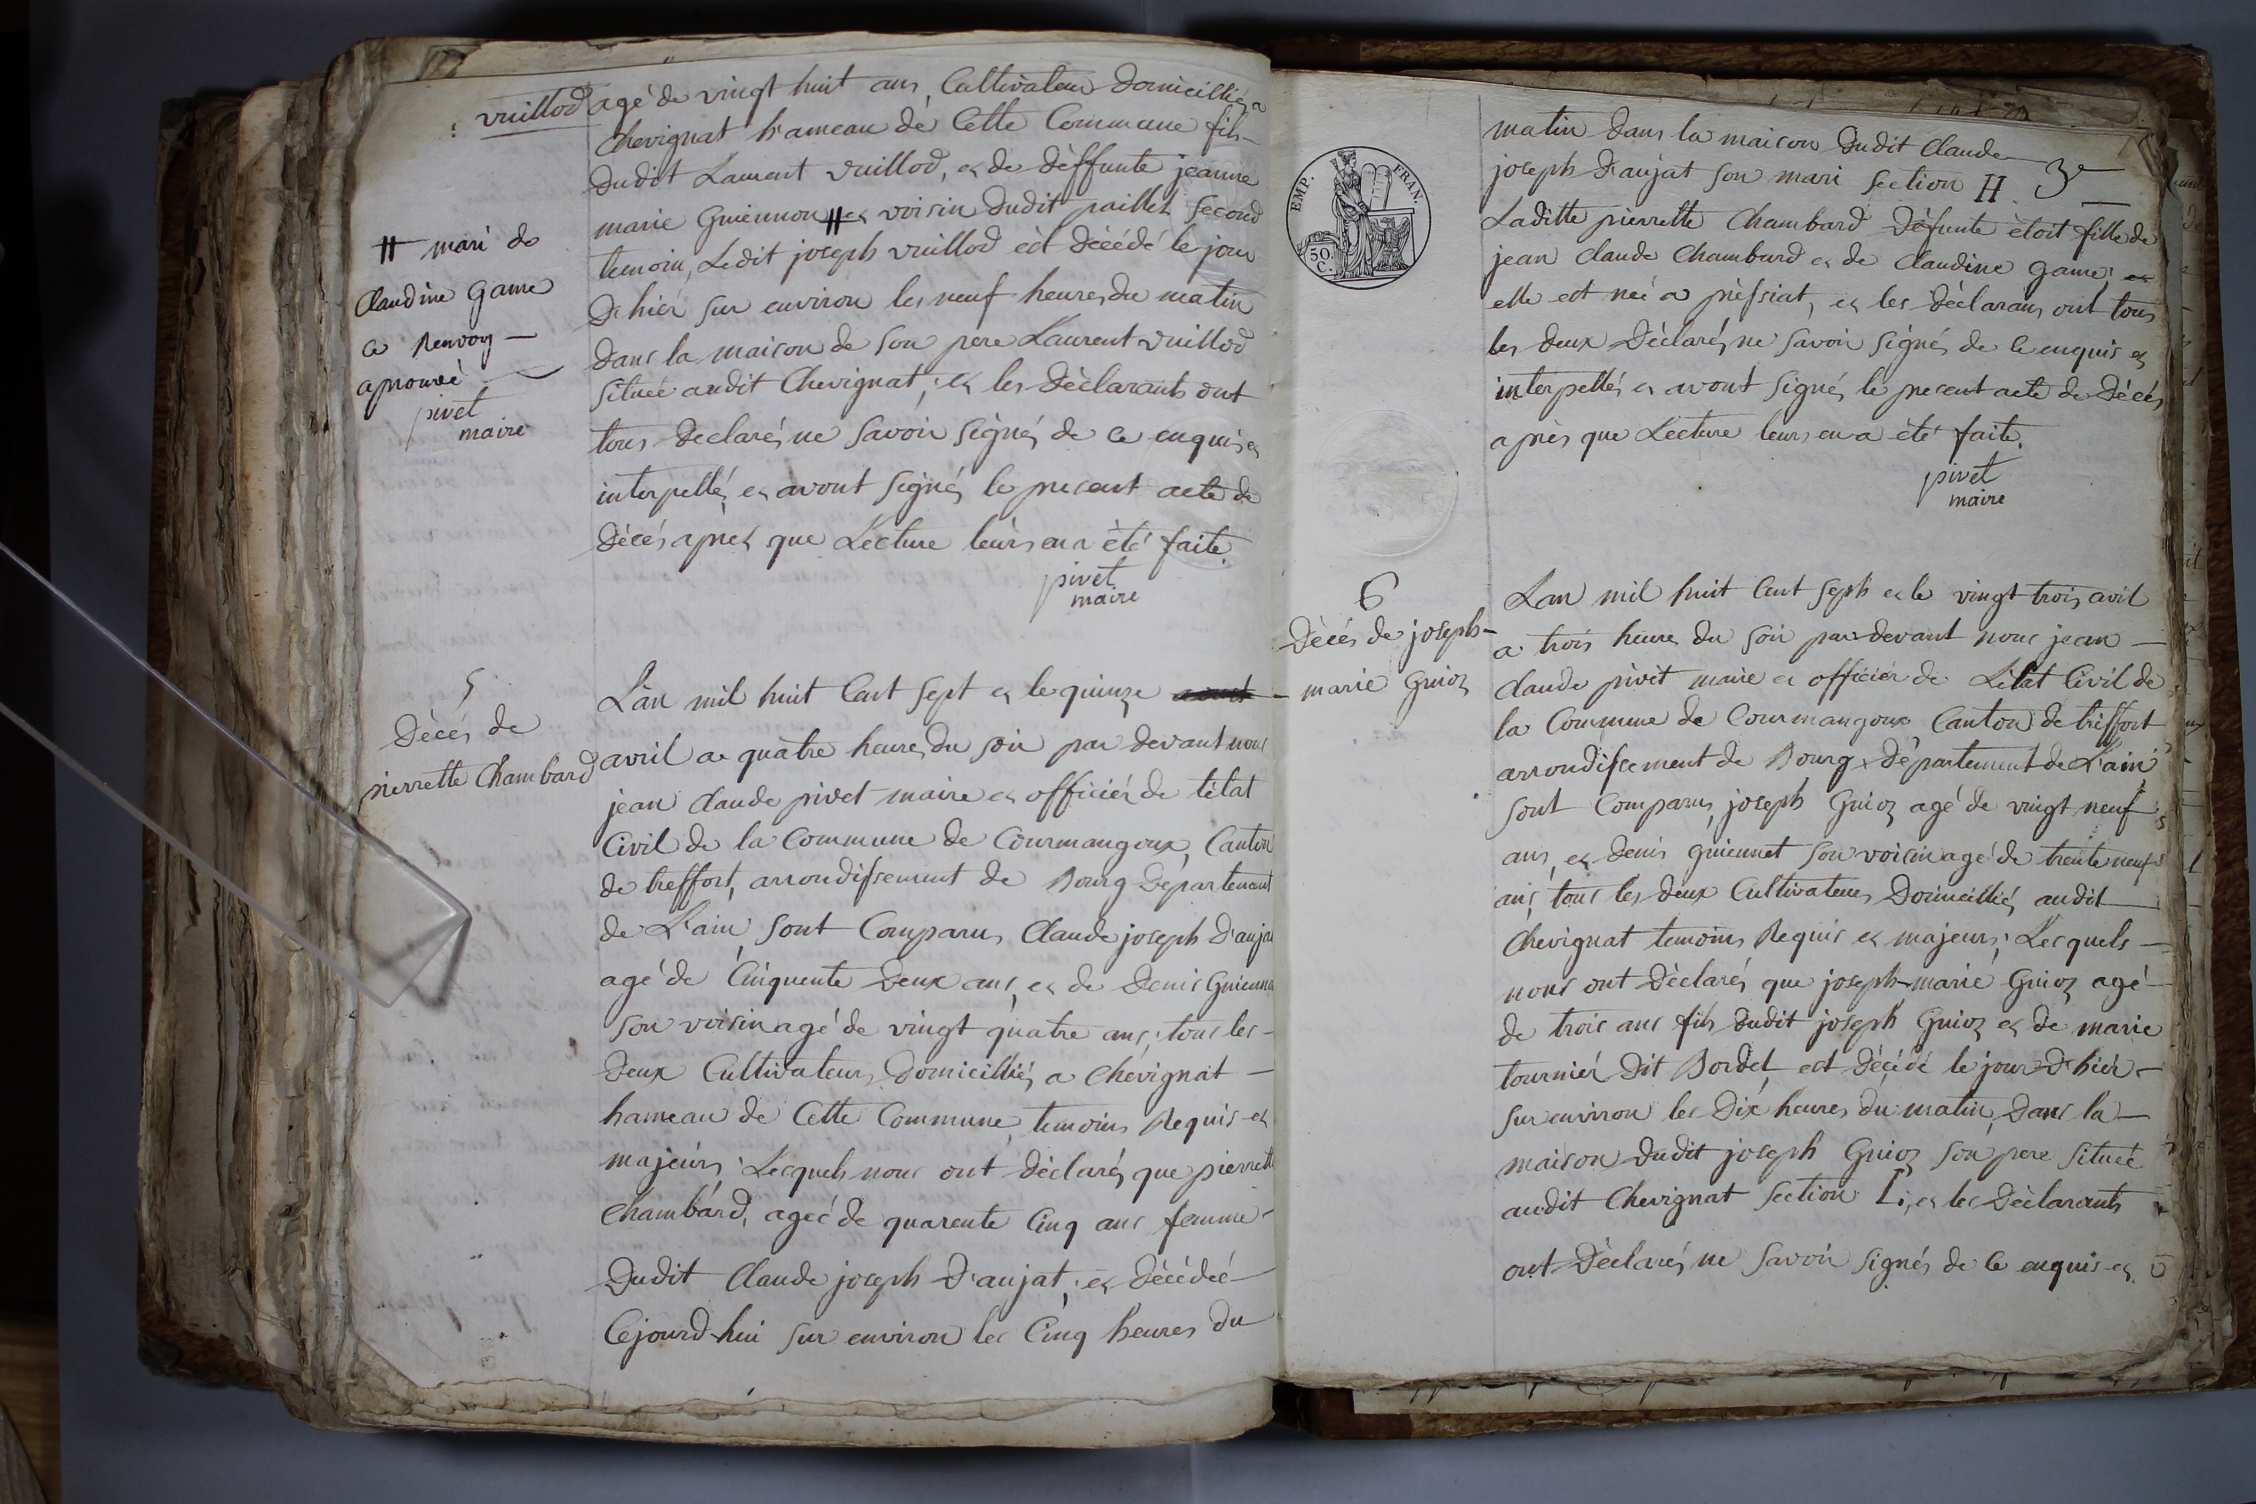 vuillod agé de vingt huit ans, Cultivateur Domicilliés a
Chevignat hameau de Cette Commune fils
dudit Laurent vuillod, et de deffunte jeanne
marie Guiennon H et voisin dudit paillet second
temoin, Ledit joseph vuillod est décédé le jour
d'hier sur environ les neuf heures du matin
dans la maison de son pere Laurent vuillod
située audit Chevignat; et les déclarants ont
tous declarés ne savoir signés de ce enquis et
interpellés et avont signés le present acte de
décés aprés que Lecture leurs en a été faite.
pivet
maire
H mari de
Claudine Game
ce Renvoy
aprouvé
pivet
maire
5
Décés de
pierrette Chambard
L'an mil huit Cent sept et le quinze
avril a quatre heures du soir par devant nous
jean Claude pivet maire et officiér de l'état
Civil de la Commune de Courmangoux, Canton
de treffort, arrondissement de Bourg Département
de L'ain, sont Comparus Claude joseph D'aujat
agé de Cinquente deux ans, et de Denis Guienn
son voisin agé de vingt quatre ans; tous les
deux Cultivateurs Domicilliés a Chevignat
hameau de Cette Commune, temoins Requis et
majeurs; Lesquels nous ont déclarés que pierrette
Chambard, ageé de quarente Cinq ans femme
dudit Claude joseph D'aujat; et décédeé
Cejourd'hui sur environ les Cinq heures du
EMP. FRAN.
50.
C.
matin dans la maison dudit Claude
joseph D'aujat son mari section H. 3e
Laditte pierrette Chambard défunte étoit fille de
jean Claude Chambard et de Claudine Game; et
elle est neé a préssiat, et les déclarans ont tous
les deux Déclarés ne savoir signés de ce enquis et
interpellés et avont signés le present acte de décés
aprés que Lecture leurs en a été faite.
pivet
maire
6
Décés de joseph-
marie Guioz
L'an mil huit Cent sept et le vingt trois avril
a trois heures du soir par devant nous jean
Claude pivet maire et officiér de L'état Civil de
la Commune de Courmangoux Canton de treffort
arrondissement de Bourg Département de L'ain
sont Comparus, joseph Guioz agé de vingt neuf
ans, et Denis guiennet son voisin agé de trente neuf
ans, tous les deux Cultivateurs Domicilliés audit
Chevignat temoins Requis et majeurs; Lesquels
nous ont déclarés que joseph-marie Guioz agé
de trois ans fils dudit joseph Guioz et de marie
tourniér dit Bordet, est décédé le jour d'hiér
sur environ les dix heures du matin, dans la
maison dudit joseph Guioz son pere située
audit Chevignat section I; et les déclarants
ont déclarés ne savoir signés de ce enquis et